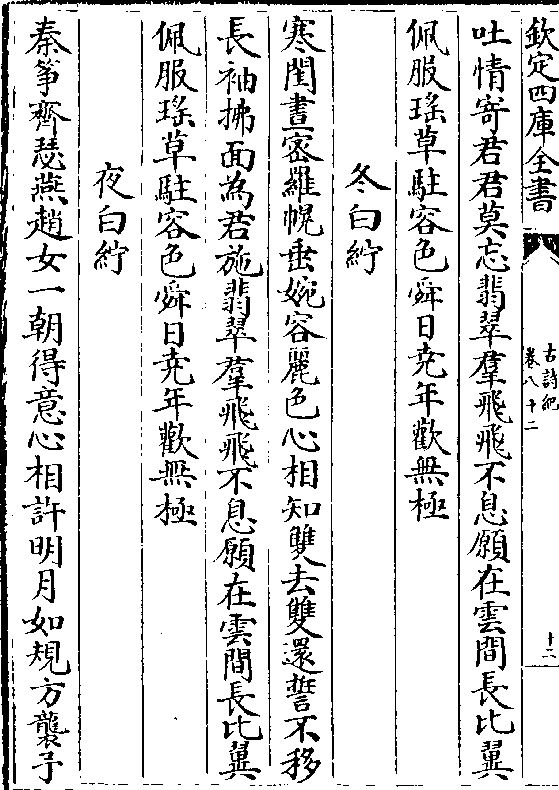 欽定四庫全書
古詩紀
卷八十二
十二
吐情寄君君莫忘翡翠羣飛飛不息願在雲間長比翼
佩服瑤草駐容色舜日堯年歡無極
冬白紵
寒閨晝密羅幌垂婉容麗色心相知雙去雙還誓不移
長袖拂面為君施翡翠羣飛飛不息願在雲間長比翼
佩服瑤草駐容色舜日堯年歡無極
夜白紵
秦箏齊瑟燕趙女一朝得意心相許明月如規方襲予